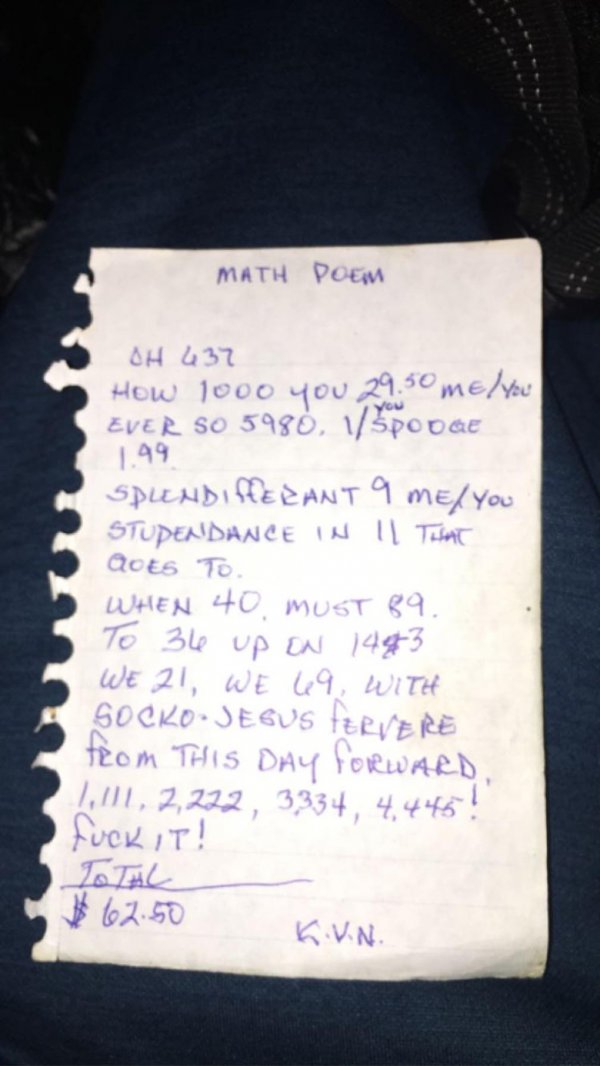 MATH POEM
OH 637
HOW 1000 YOU 29.50 ME/YOU
EVER SO 5980. 1/SPODGE
YOU
1.99.
SPLENDIFFERANT 9 ME/YOU
STUPENDANCE IN 11 THAT
GOES TO.
WHEN 40, MUST 89.
TO 36 UP ON
WE 21, WE 69, WITH
SOCKO-JESUS FERVERE
FROM THIS DAY FORWARD,
1,111, 2,222, 3,334, 4,445!
FUCK IT!
TOTAL
$ 62.50
K.V.N.